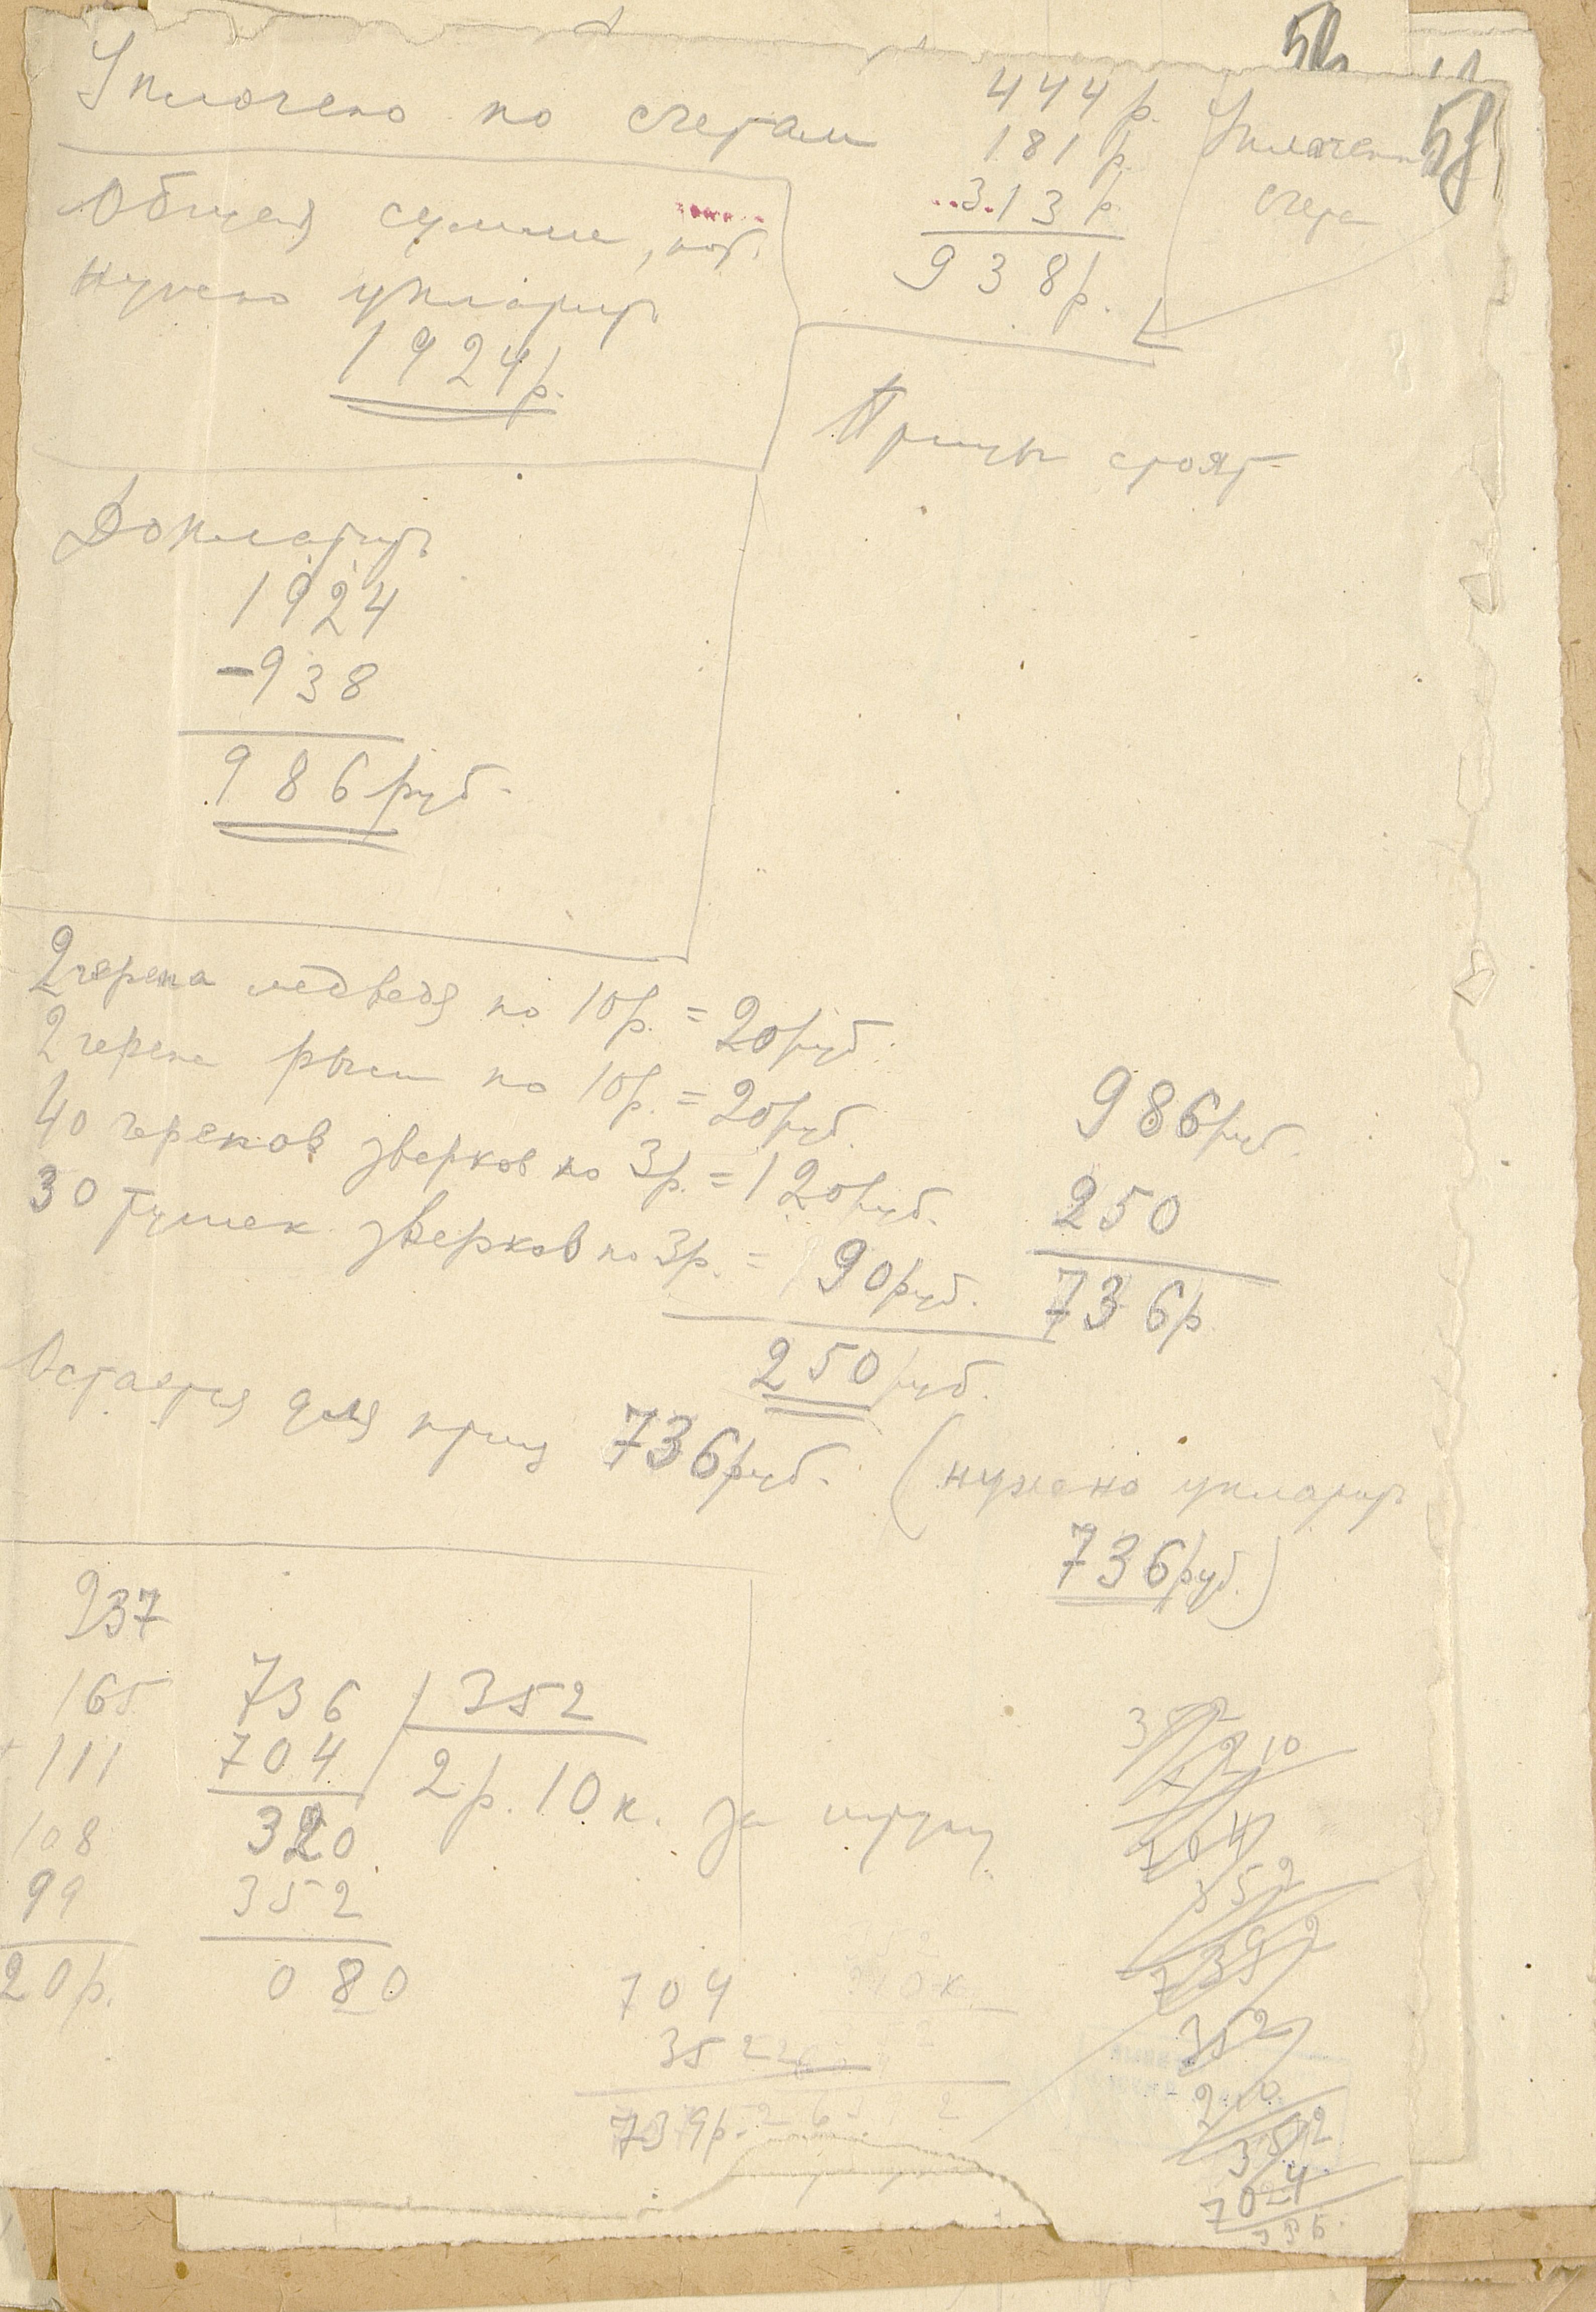 Уплочено по счетам
444 р.
181 р.
313 р.
938 р.
Уплачен
счета
58
Общая сумма, кот.
нужно уплатить
1924 р.
Птицы стоят
Доплатить
1924
-938
986 руб.
2 черепа медведя по 10 р. = 20 руб.
2 черепа рыси по 10 р. = 20 руб.
40 черепов зверков по 3 р. = 120 руб.
30 тушек зверков по 3 р. = 90 руб.
250 руб.
986 руб.
250
736 р
Остается для птиц 736 руб. (нужно уплатить
736 руб.)
237
165
111
108
99
20 р.
736 | 352
704 2 р. 10 к. за штуку
320
352
080
704
352
739 р.
352
210
704
352
7392
352
210
352
704